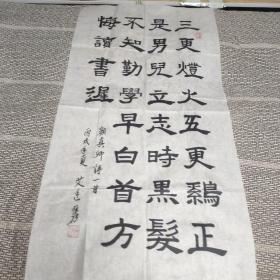 三更燈火五更鷄正
是男兒立志時黑髮
不知勤學早白首方
悔讀書遲
顏真卿詩一首
丙戌年夏